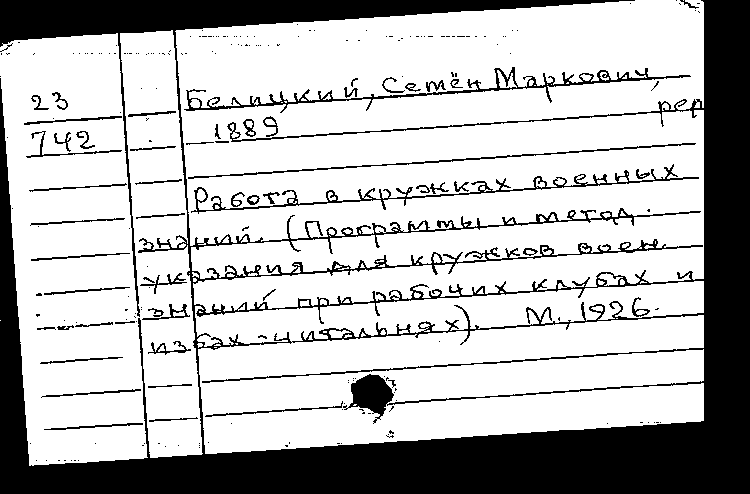 23
742
Белицкий, Семён Маркович,
1889
ред
Работа в кружках военных
знаний. (Программы и метод.
указания для кружков воен.
знаний при рабочих клубах и
избах-читальнях). М., 1926.